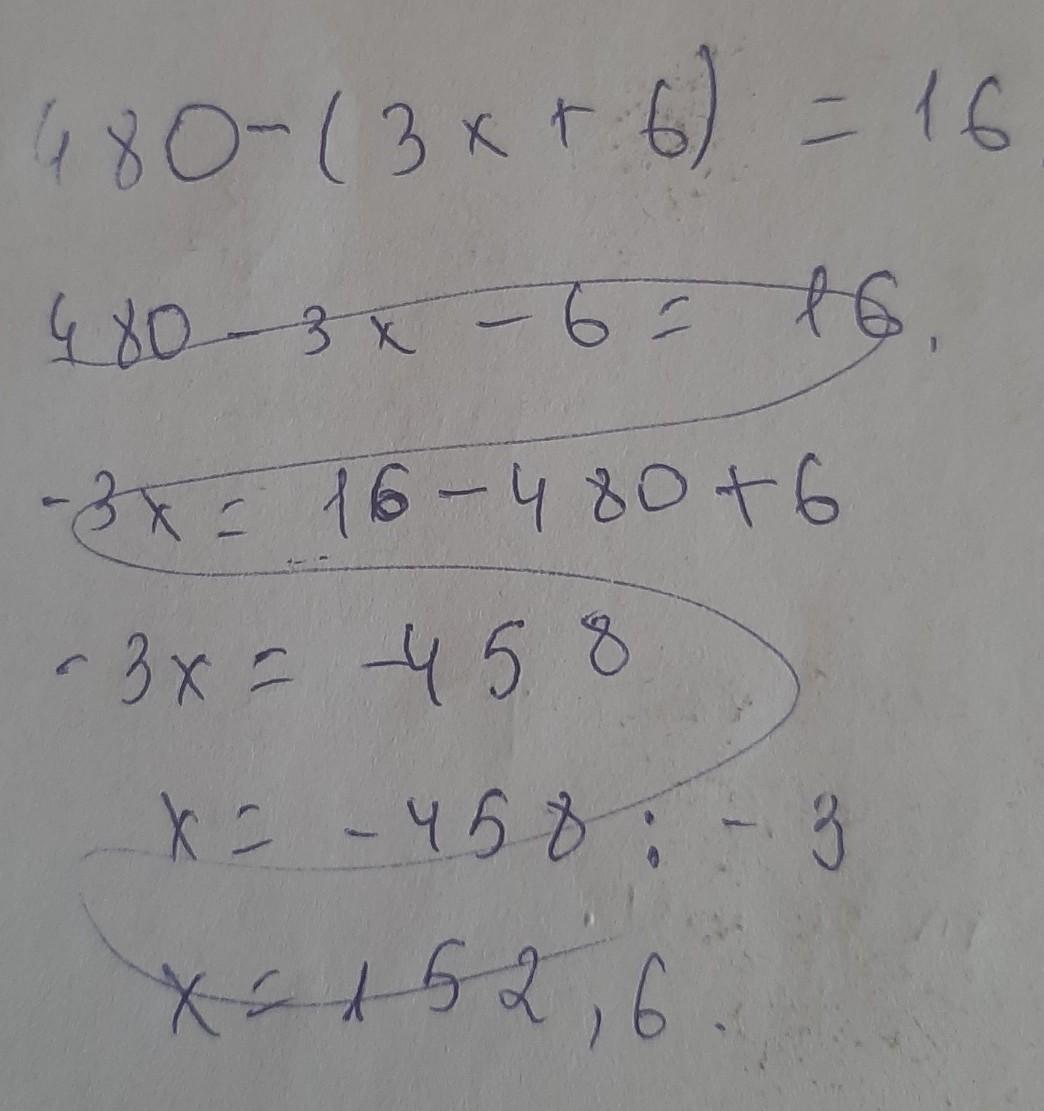 480-(3x+6) = 16
480-3x-6= 16.
-3x= 16-480+6
-3x= -458
x= -458:-3
x=152,6.